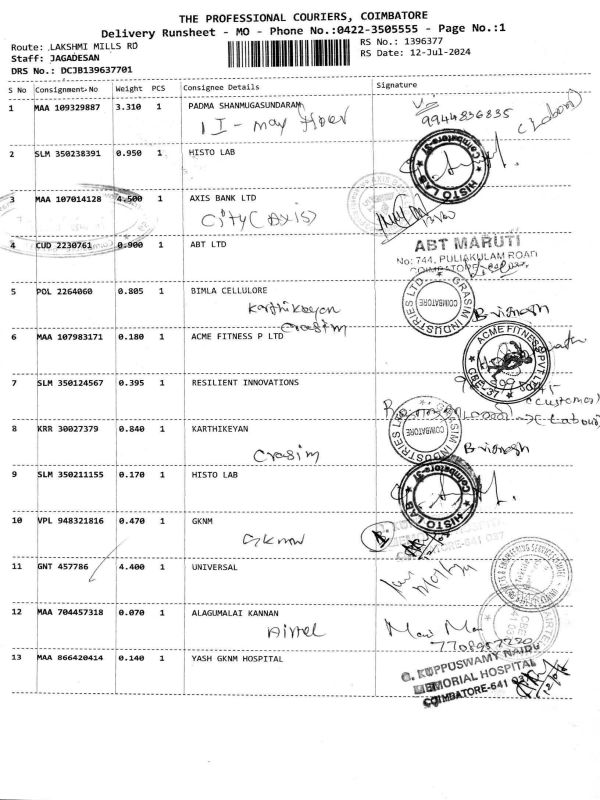 THE PROFESSIONAL COURIERS, COIMBATORE
Delivery Runsheet - MO - Phone No.:0422-3505555 - Page No.:1
Route: LAKSHMI MILLS RD
RS No.: 1396377
Staff: JAGADESAN
RS Date: 12-Jul-2024
DRS No.: DCJB139637701
S No Consignment No Weight PCS Consignee Details Signature
1 MAA 109329887 3.310 1 PADMA SHANMUGASUNDARAM
9944836835
(Labour)
2 SLM 350238391 0.950 1 HISTO LAB
HISTO LAB Coimbatore-37
3 MAA 107014128 4.500 1 AXIS BANK LTD
City (axis)
4 CUD 2230761 0.900 1 ABT LTD
ABT MARUTI
No: 744, PULIAKULAM ROAD
COIMBATORE
5 POL 2264060 0.805 1 BIMLA CELLULORE
Karthikeyan
Grasim
GRASIM INDUSTRIES LTD COIMBATORE
6 MAA 107983171 0.180 1 ACME FITNESS P LTD
ACME FITNESS PVT LTD CBE-37
7 SLM 350124567 0.395 1 RESILIENT INNOVATIONS
(customer)
(Labour)
8 KRR 30027379 0.840 1 KARTHIKEYAN
Grasim
GRASIM INDUSTRIES LTD COIMBATORE
9 SLM 350211155 0.170 1 HISTO LAB
HISTO LAB Coimbatore-37
10 VPL 948321816 0.470 1 GKNM
Gknm
11 GNT 457786 4.400 1 UNIVERSAL
12 MAA 704457318 0.070 1 ALAGUMALAI KANNAN
Airtel
13 MAA 866420414 0.140 1 YASH GKNM HOSPITAL
G. KUPPUSWAMY NAIDU
MEMORIAL HOSPITAL
COIMBATORE-641 037